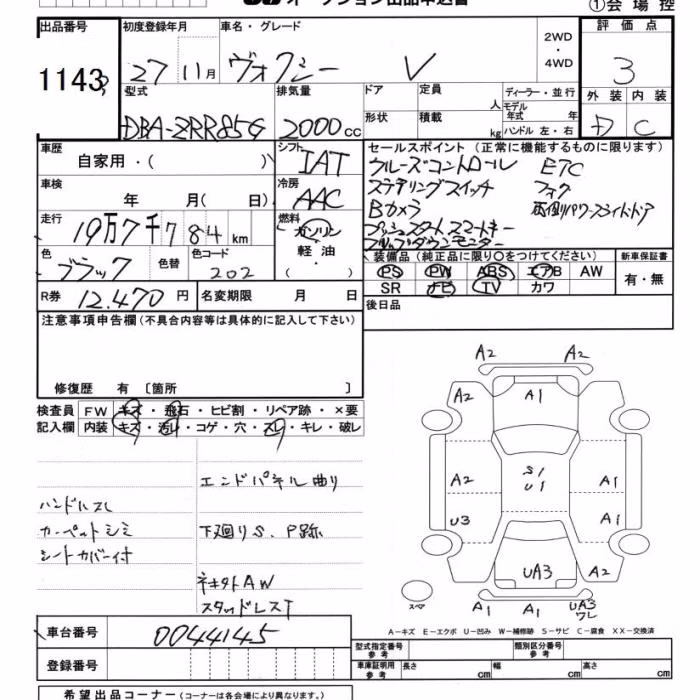 オークション出品申込書
①会場控
出品番号 初度登録年月 車名・グレード 評価点
1143 27 11月 ヴォクシー V 2WD ・ 4WD 3
型式 排気量 ドア 定員 人 ディーラー・並行 外装 内装
DBA-ZRR85G 2000cc 形状 積載 kg モデル年式 年 ハンドル 左・右 D C
車歴 自家用・( ) シフト IAT セールスポイント (正常に機能するものに限ります)
クルーズコントロール ETC
車検 年 月( 日) 冷房 AAC ステアリングスイッチ フォグ
Bカメラ 両側パワースライドドア
走行 19万7千784km 燃料 ガソリン 軽・油 ( ) プッシュスタートスマートキー
フリップダウンモニター
色 ブラック 色替 色コード 202 装備品 (純正品に限り○をつけてください) 新車保証書
PS PW ABS エアB AW 有・無
R券 12.470円 名変期限 月 日 SR ナビ TV カワ
後日品
注意事項申告欄 (不具合内容等は具体的に記入して下さい)
修復歴 有 〔箇所 〕
検査員 FW キズ・飛石・ヒビ割・リペア跡・×要
記入欄 内装 キズ・汚レ・コゲ・穴・スレ・キレ・破レ
エンドパネル曲り
ハンドルスレ
カーペットシミ 下廻りS、P跡
シートカバー付
ネキストAW
スタッドレスT
A2 A2
A2 A1
A2 S1 U1 A1
U3 A1
UA3 A2
スペア A1 A1 UA3 ワレ
A-キズ E-エクボ U-凹み W-補修跡 S-サビ C-腐食 XX-交換済
車台番号 0044145 型式指定番号 参考 類別区分番号 参考
登録番号 車庫証明用 参考 長さ cm 幅 cm 高さ cm
希望出品コーナー (コーナーは各会場により異なります。)